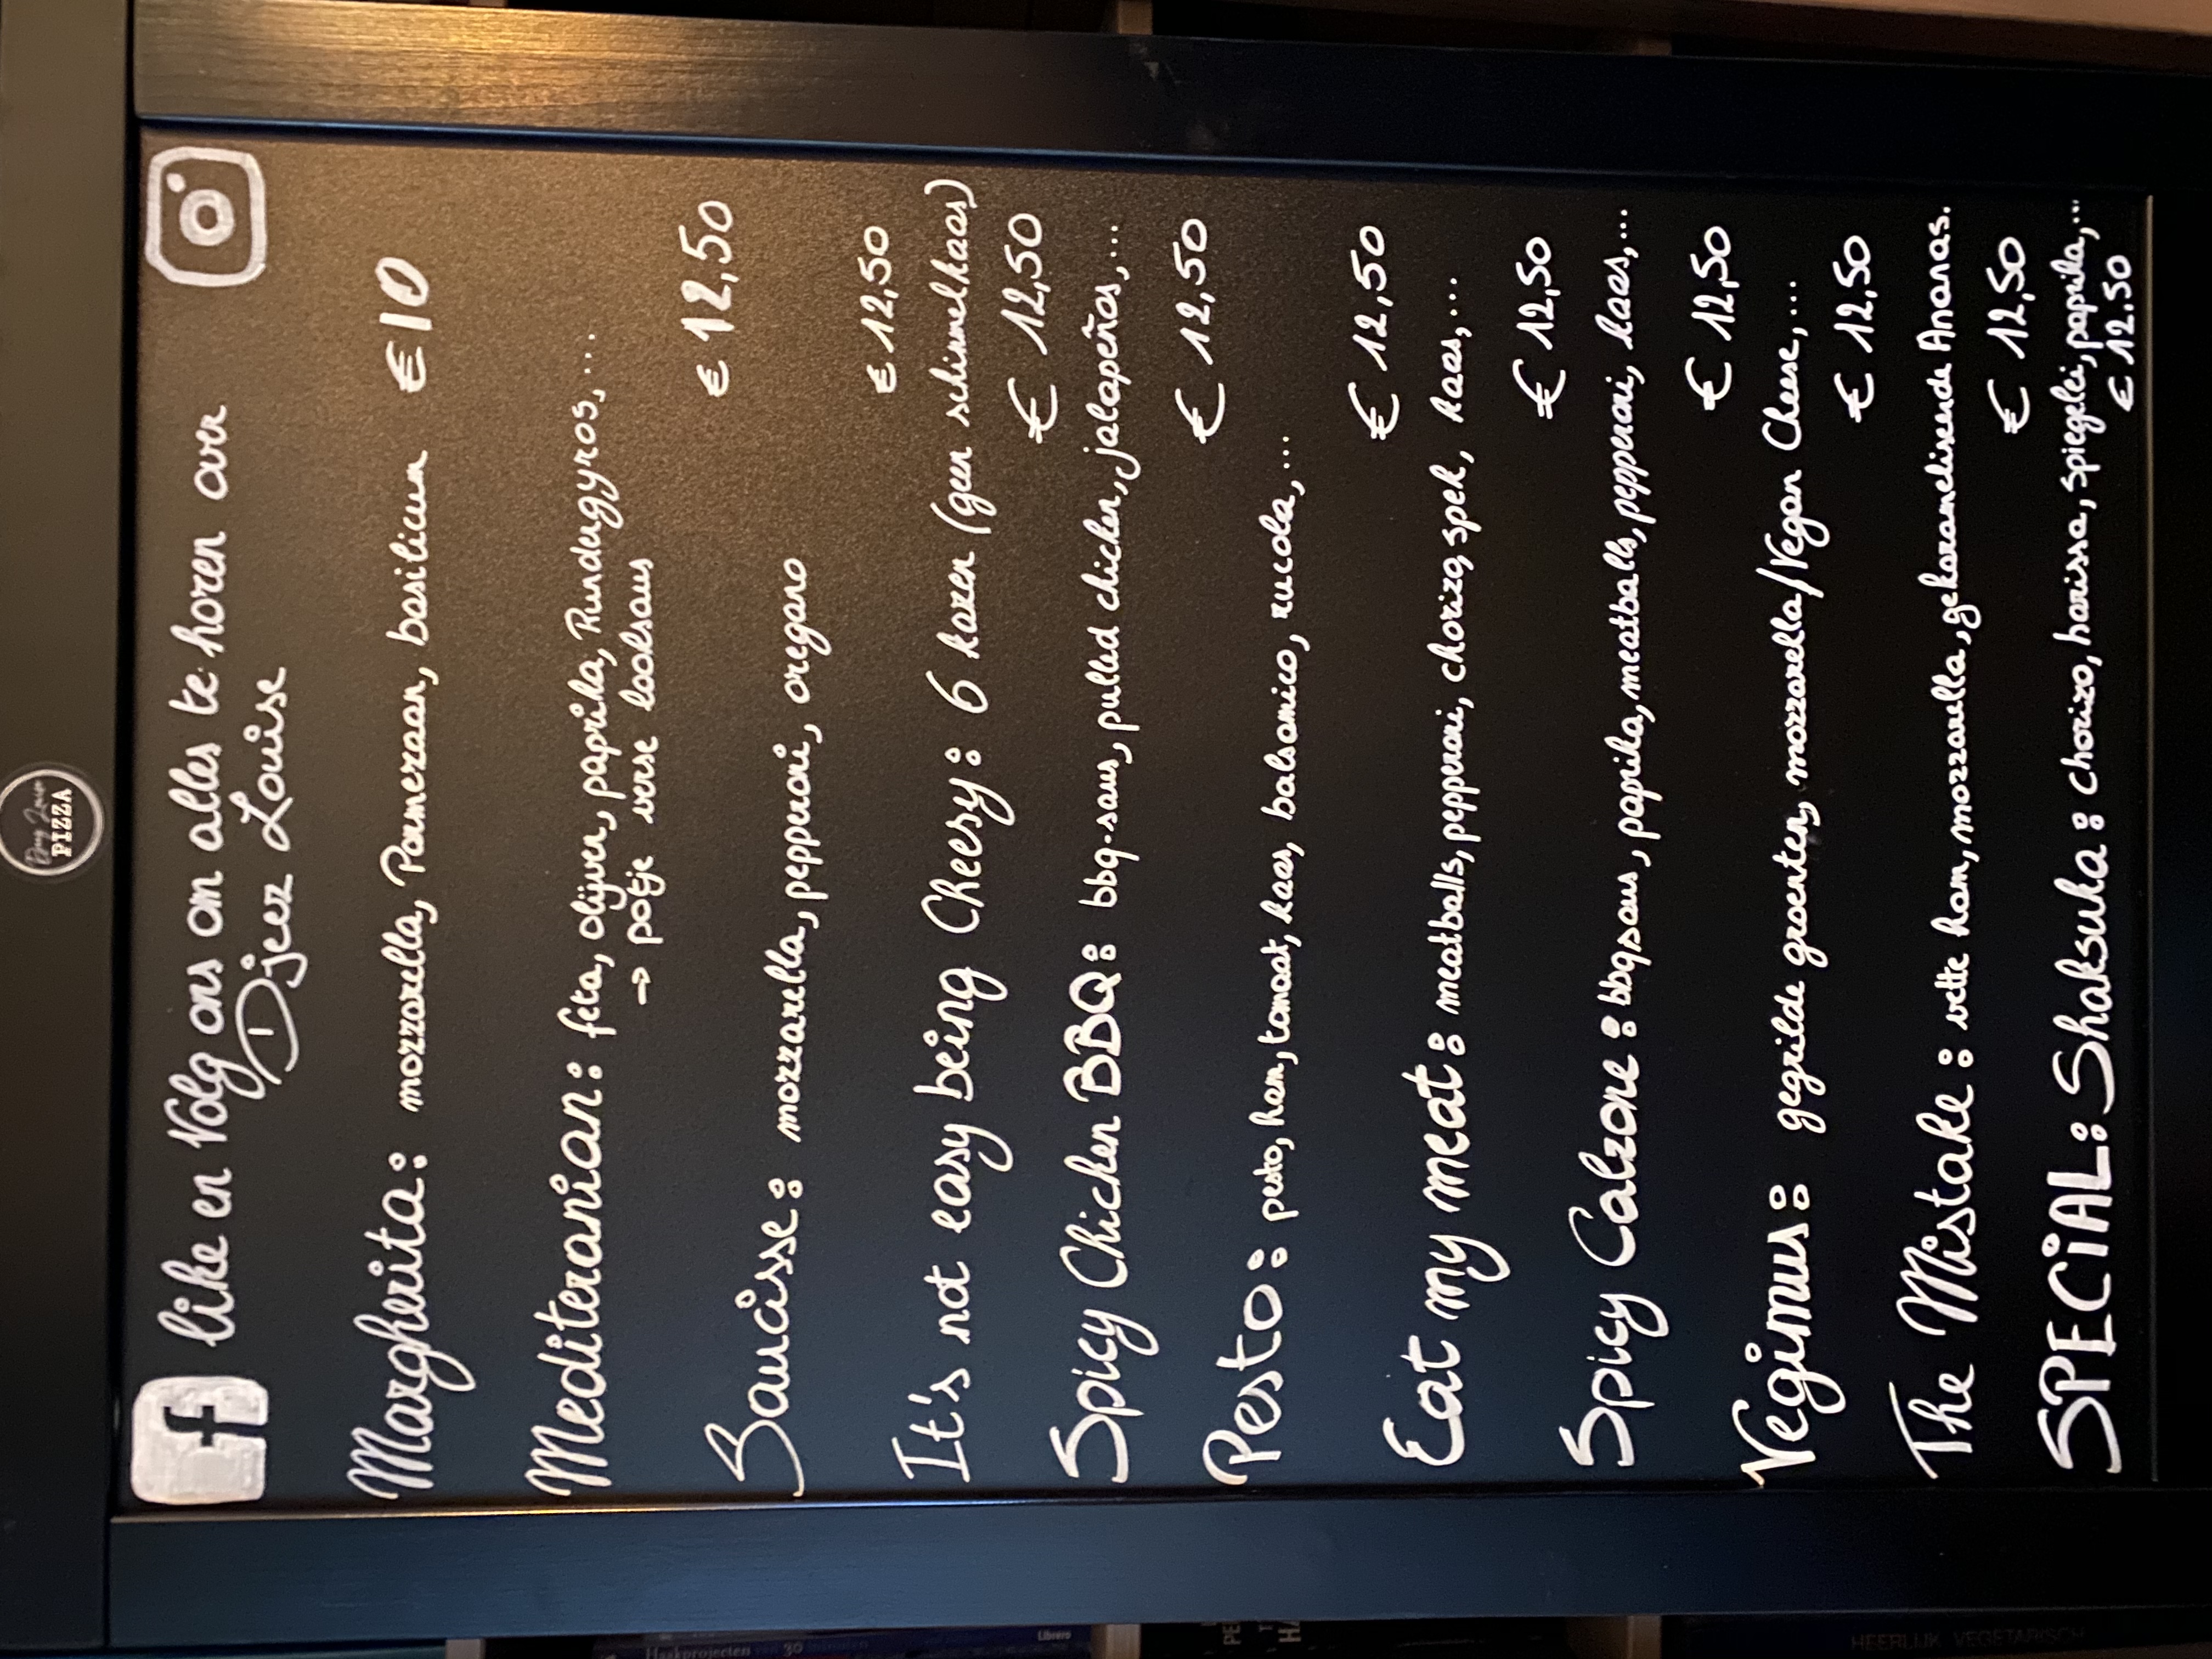 PIZZA
like en Volg ons om alles te horen over
Djeez Louise
Margherita: mozzarella, Parmezaan, basilicum € 10
Mediteranian: feta, olijven, paprika, Rundergyros,...
→ potje verse looksaus
€ 12,50
Saucisse: mozzarella, pepperoni, oregano
€ 12,50
It's not easy being Cheesy: 6 kazen (geen schimmelkaas)
€ 12,50
Spicy Chicken BBQ: bbq-saus, pulled chicken, jalapeños,...
€ 12,50
Pesto: pesto, ham, tomaat, kaas, balsamico, rucola,...
€ 12,50
Eat my meat: meatballs, pepperoni, chorizo, spek, kaas,...
€ 12,50
Spicy Calzone: bbqsaus, paprika, meatballs, pepperoni, kaas,...
€ 12,50
Vegimus: gegrilde groenten, mozzarella/Vegan Cheese,...
€ 12,50
The Mistake: vette ham, mozzarella, gekarameliseerde Ananas.
€ 12,50
SPECiAL: Shaksuka: chorizo, harissa, spiegelei, paprika,...
€ 12.50
Haakprojecten 30
Librero
HEERLIJK VEGETARISCH